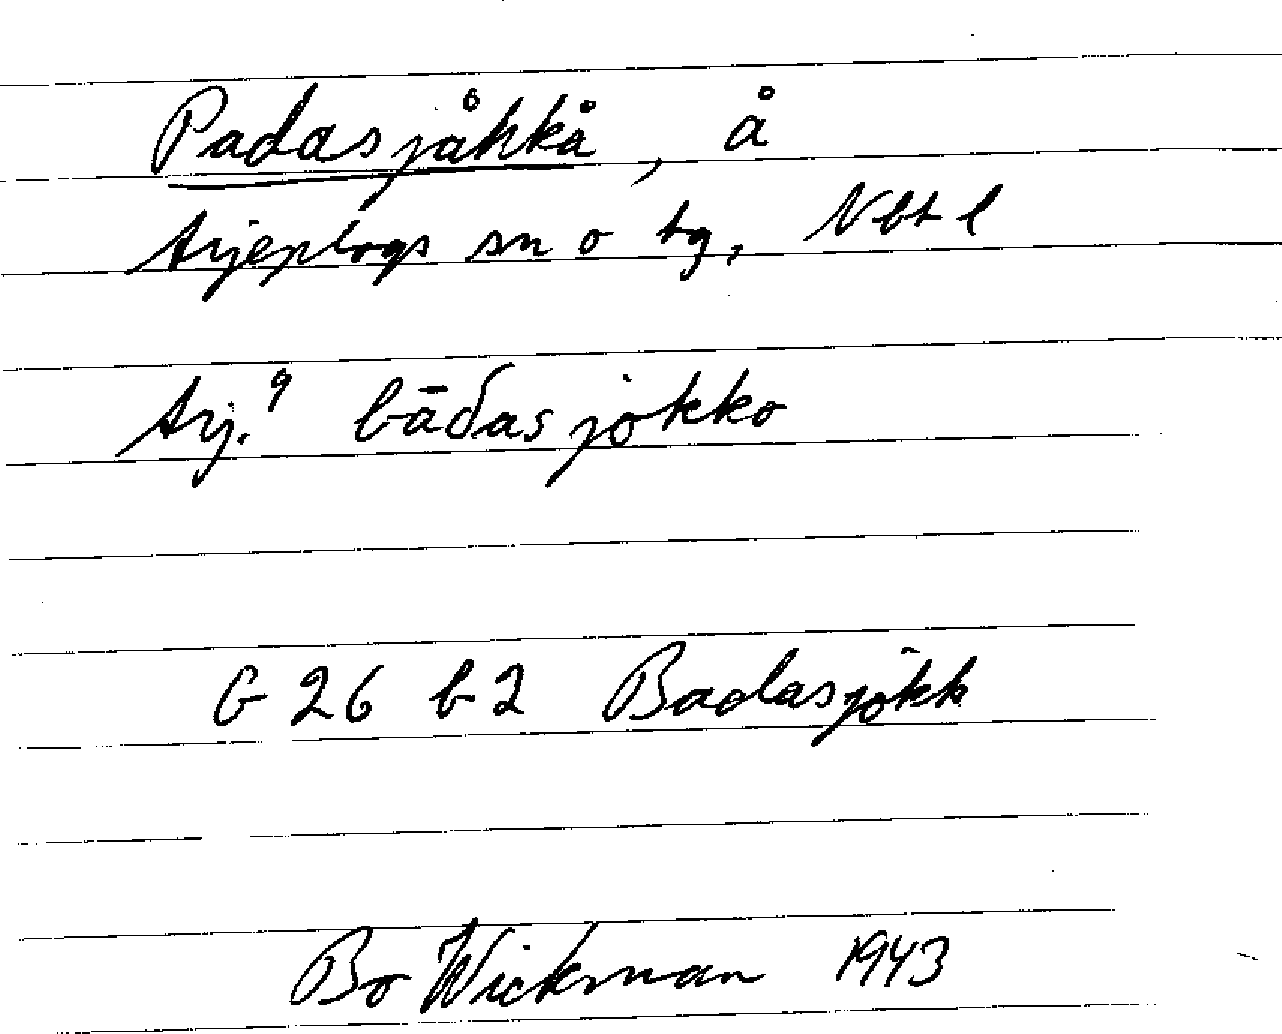 Padasjåhkå, å
Arjeplogs sn o tg, Nbt l
Arj.9 bāδasjokko
G 26 b2 Badasjokk
Bo Wickman 1943